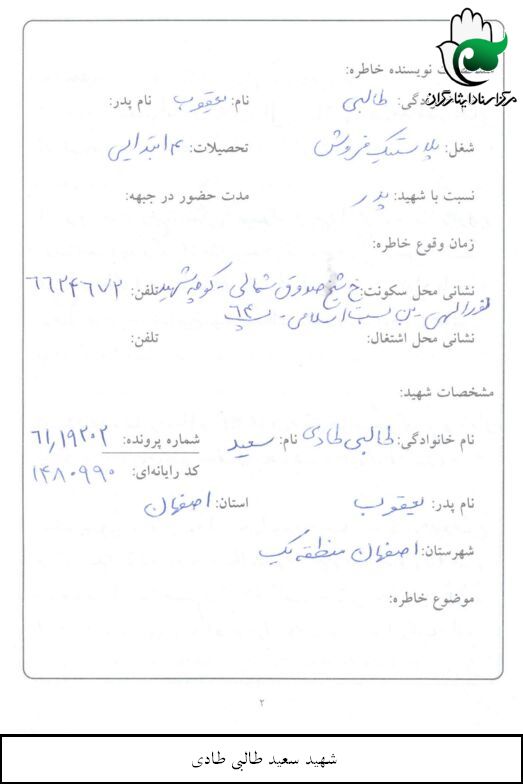 نویسنده خاطره:
مرکز اسناد ایثارگران
طالبی نام: یعقوب نام پدر:
شغل: پلاستیک فروش تحصیلات: ۴ ابتدایی
نسبت با شهید: پدر مدت حضور در جبهه:
زمان وقوع خاطره:
نشانی محل سکونت: خ شیخ صدوق شمالی - کوچه شهید تلفن: ۶۶۲۴۶۷۲
نورالهی - بن بست اسلامی - پ ۶۴
نشانی محل اشتغال: تلفن:
مشخصات شهید:
نام خانوادگی: طالبی طادی نام: سعید شماره پرونده: ۶۱٫۱۹۲۰۲
کد رایانه‌ای: ۱۴۸۰۹۹۰
نام پدر: یعقوب استان: اصفهان
شهرستان: اصفهان منطقه یک
موضوع خاطره:
۲
شهید سعید طالبی طادی